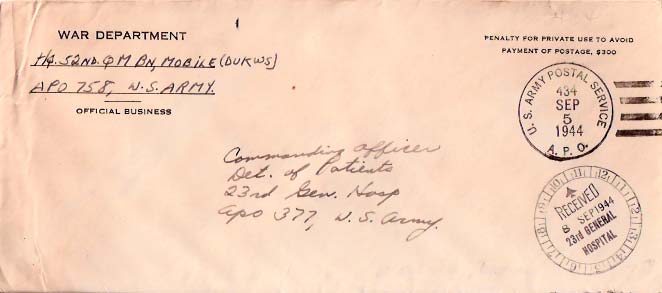 WAR DEPARTMENT
HQ. 52ND. QM BN, MOBILE (DUKWS)
APO 758, U.S. ARMY.
OFFICIAL BUSINESS
PENALTY FOR PRIVATE USE TO AVOID
PAYMENT OF POSTAGE, $300
U. S. ARMY POSTAL SERVICE
434
SEP
5
1944
A. P. O.
Commanding Officer
Det. of Patients
23rd Gen. Hosp
apo 377, U.S. Army.
RECEIVED
8 SEP 1944
23rd GENERAL
HOSPITAL